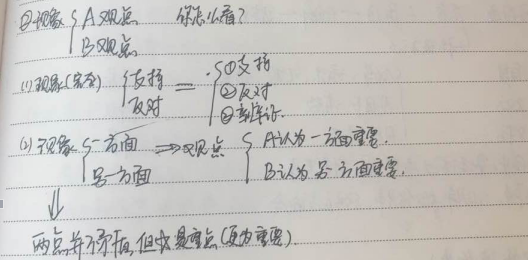 ②现象 A观点 你怎么看?
B观点
(1)现象(完全) 支持 = ①支持
反对 ②反对
③辩证
(2)现象 一方面 ⇒观点 A认为一方面重要.
另一方面 B认为另一方面重要.
⇓
两点并不矛盾,但是重点(更为重要).